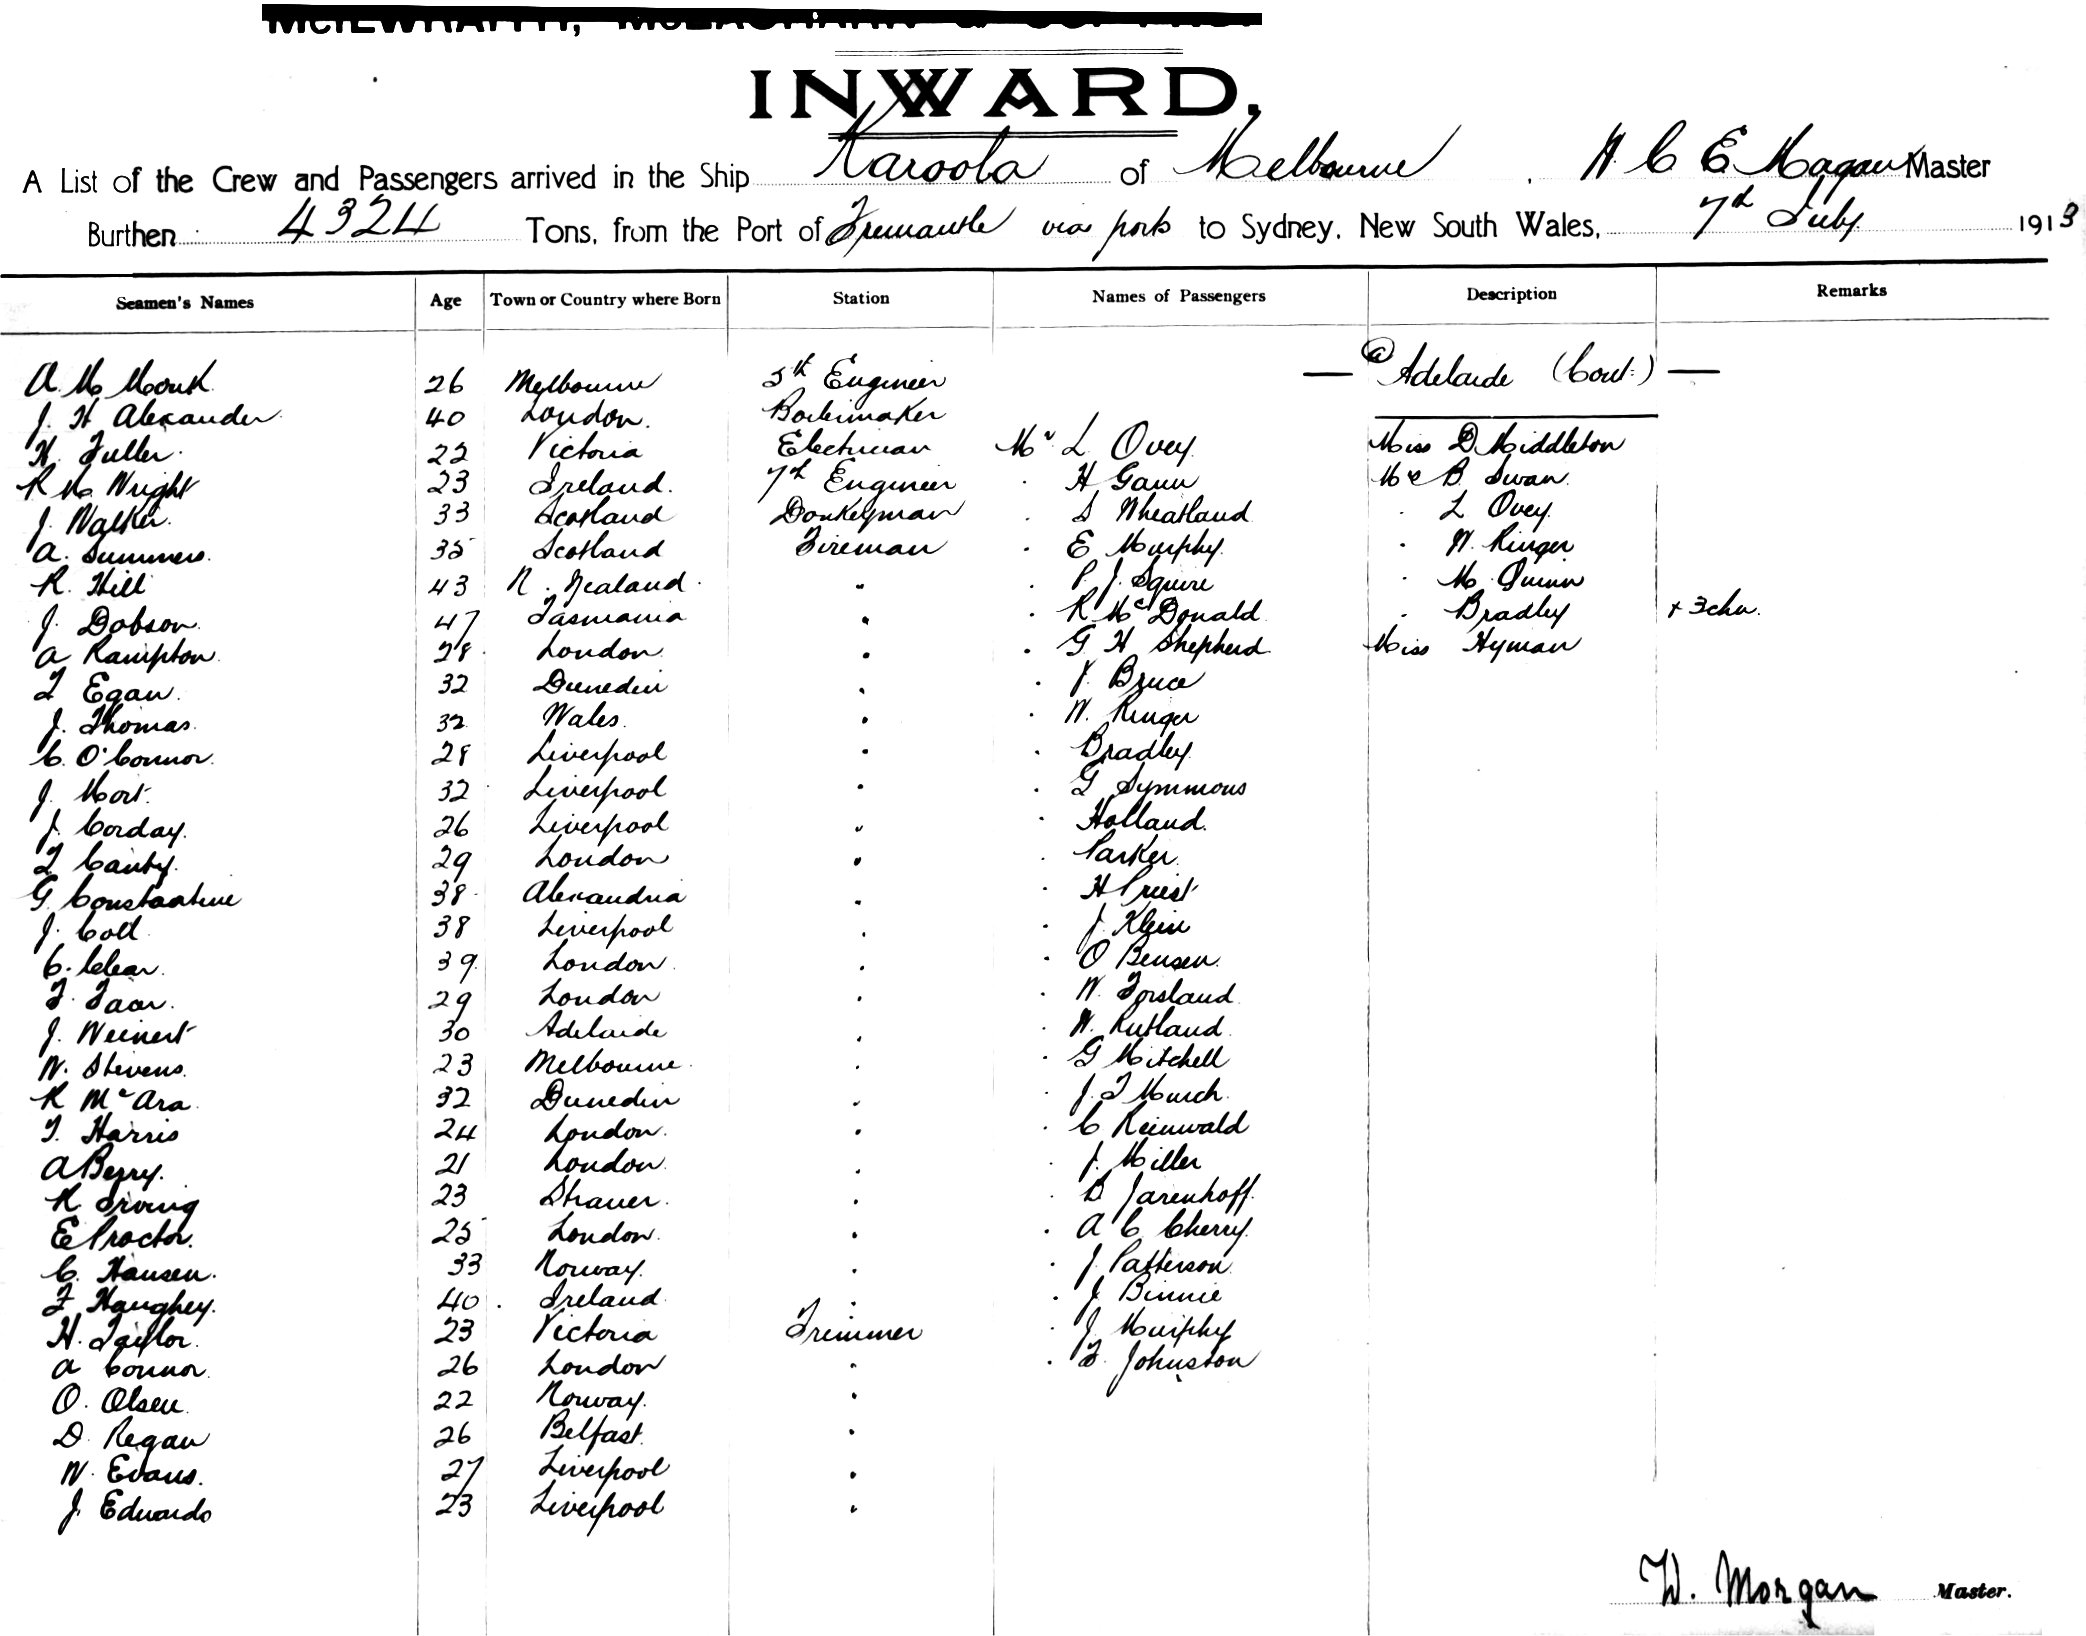 INWARD.
A List of the Crew and Passengers arrived in the Ship Karoola of Melbourne . Master
Burthen 4324 Tons, from the Port of Fremantle via ports to Sydney, New South Wales, 7th July 1913
Seamen's Names Age Town or Country where Born Station Names of Passengers Description Remarks
— @ Adelaide (Cont:) —
A. Mc 26 Melbourne 5th Engineer
J. H Alexander 40 London. Boilermaker
H. Fuller 22 Victoria Electrician Mr L Ovey Miss D Middleton
R Mc Wright 23 Ireland. 7th Engineer . H Gann B. Swan
J. Walker. 33 Scotland Donkeyman . S Wheatland . L Ovey
A. Summers. 35 Scotland Fireman . E Murphy. . W. Ringer
R. Hill 43 N. Zealand. " . P. J. Squire . M. Quinn
J. Dobson. 47 Tasmania " . R McDonald . Bradley + 3 chn.
A Rampton 28 London " . G H Shepherd Miss Hyman
T Egan. 32 Dunedin " . J. Bruce
J. Thomas. 32 Wales. " . W. Ringer
C. O'Connor. 28 Liverpool " . Bradley.
J. Mort. 32 Liverpool " . G Symmons
J. Corday. 26 Liverpool " . Holland.
T Canty. 29 London " . Parker.
G. Constantine 38 Alexandria " . H Priest
J. Coll 38 Liverpool " . J. Klein
C. Clear. 39 London " . O Bensen.
F. 29 London " . W. Forsland.
J. Weinert 30 Adelaide " . W. Rutland
W. Stevens. 23 Melbourne " . G Mitchell
R McAra. 32 Dunedin " . J. F Murch.
T. Harris 24 London. " . C Reinwald
A Berry. 21 London " . J. Miller
R. Irving 23 " . D Jarenhoff.
E Proctor. 25 London. " . A C Cherry.
C. Hansen. 33 Norway. " . J. Patterson
F Haughey. 40 Ireland " . J Binnie
H. Taylor. 23 Victoria Trimmer . J. Murphy
A Connor. 26 London " . F. Johnston
O. Olsen. 22 Norway. "
D. Regan 26 Belfast. "
W. Evans. 27 Liverpool "
J. Edwards 23 Liverpool "
W. Morgan Master.